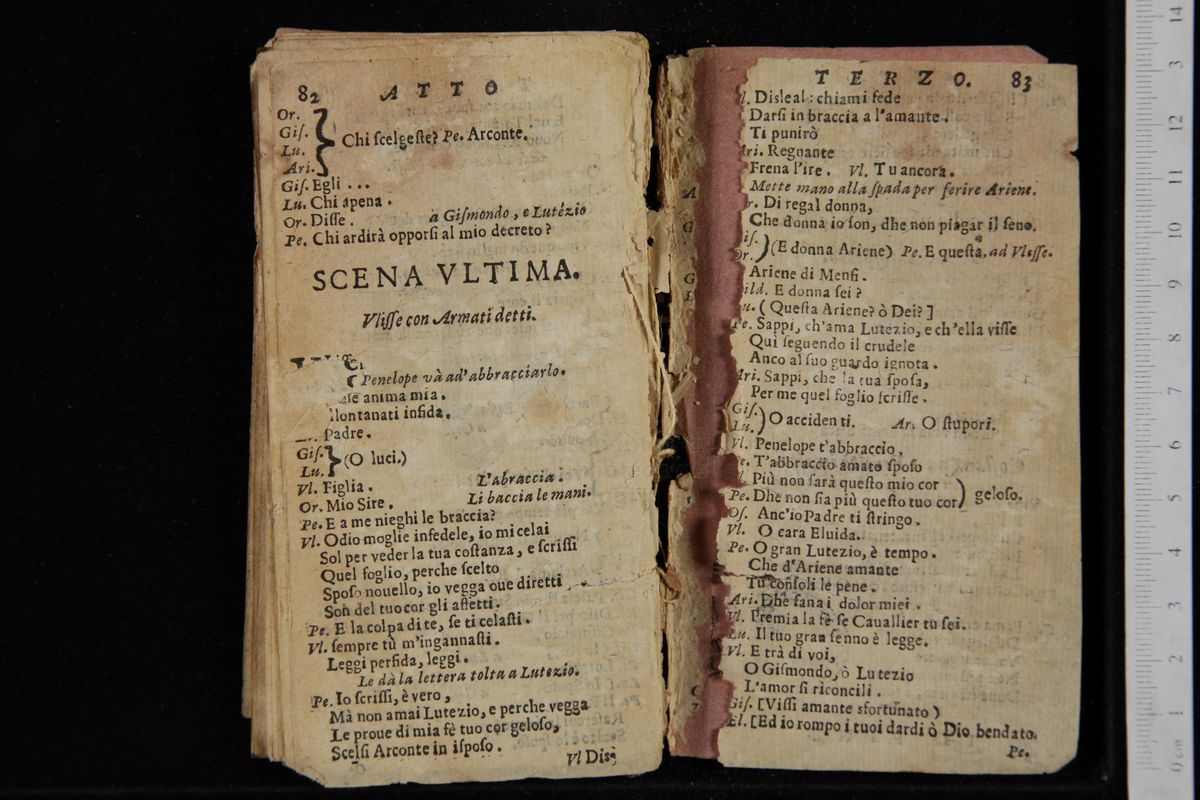 82 ATTO
Or.
Giſ.
Lu.
Ari.
Chi ſcelgeſte? Pe. Arconte.
Giſ. Egli ...
Lu. Chi apena.
Or. Diſſe. à Giſmondo, e Lutézio
Pe. Chi ardirà opporſi al mio decreto?
SCENA VLTIMA.
Vliſſe con Armati detti.
Penelope và ad'abbracciarlo.
anima mia.
llontanati infida.
Padre.
Giſ.
Lu.
(O luci.)
Vl. Figlia. L'abraccia.
Or. Mio Sire. Li baccia le mani.
Pe. E a me nieghi le braccia?
Vl. Odio moglie infedele, io mi celai
Sol per veder la tua coſtanza, e ſcriſſi
Quel foglio, perche ſcelto
Spoſo nouello, io vegga oue diretti
Son del tuo cor gli affetti.
Pe. E la colpa di te, ſe ti celaſti.
Vl. ſempre tù m'ingannaſti.
Leggi perfida, leggi.
Le dà la lettera tolta a Lutezio.
Pe. Io ſcriſſi, è vero,
Mà non amai Lutezio, e perche vegga
Le proue di mia fè tuo cor geloſo,
Scelſi Arconte in iſpoſo.
Vl Diſ
TERZO. 83
l. Disleal: chiami fede
Darſi in braccia a l'amante.
Ti punirò
Ari. Regnante
Frena l'ire. Vl. Tu ancora.
Mette mano alla ſpada per ferire Ariene.
r. Di regal donna,
Che donna io ſon, dhe non piagar il ſeno.
iſ.
Or.
(E donna Ariene) Pe. E queſta. ad Vliſſe.
Ariene di Menfi.
ild. E donna ſei?
u. ( Queſta Ariene? ò Dei? ]
Pe. Sappi, ch'ama Lutezio, e ch'ella viſſe
Qui ſeguendo il crudele
Anco al ſuo guardo ignota.
Ari. Sappi, che la tua ſpoſa,
Per me quel foglio ſcriſſe.
Giſ.
Lu.
) O accidenti. Ar. O ſtupori.
Vl. Penelope t'abbraccio.
Pe. T'abbraccio amato ſpoſo
l. Più non ſarà queſto mio cor
Pe. Dhe non ſia più queſto tuo cor ) geloſo.
Oſ. Anc'io Padre ti ſtringo.
Vl. O cara Eluida.
Pe. O gran Lutezio, è tempo.
Che d'Ariene amante
Tu conſoli le pene.
Ari. Dhe ſana i dolor miei.
Vl. Premia la fè ſe Cauallier tu ſei.
Lu. Il tuo gran ſenno è legge.
Vl. E trà di voi,
O Giſmondo, ò Lutezio
L'amor ſi riconcili.
Giſ. [Viſſi amante sfortunato)
El. [Ed io rompo i tuoi dardi ò Dio bendato.
Pe.